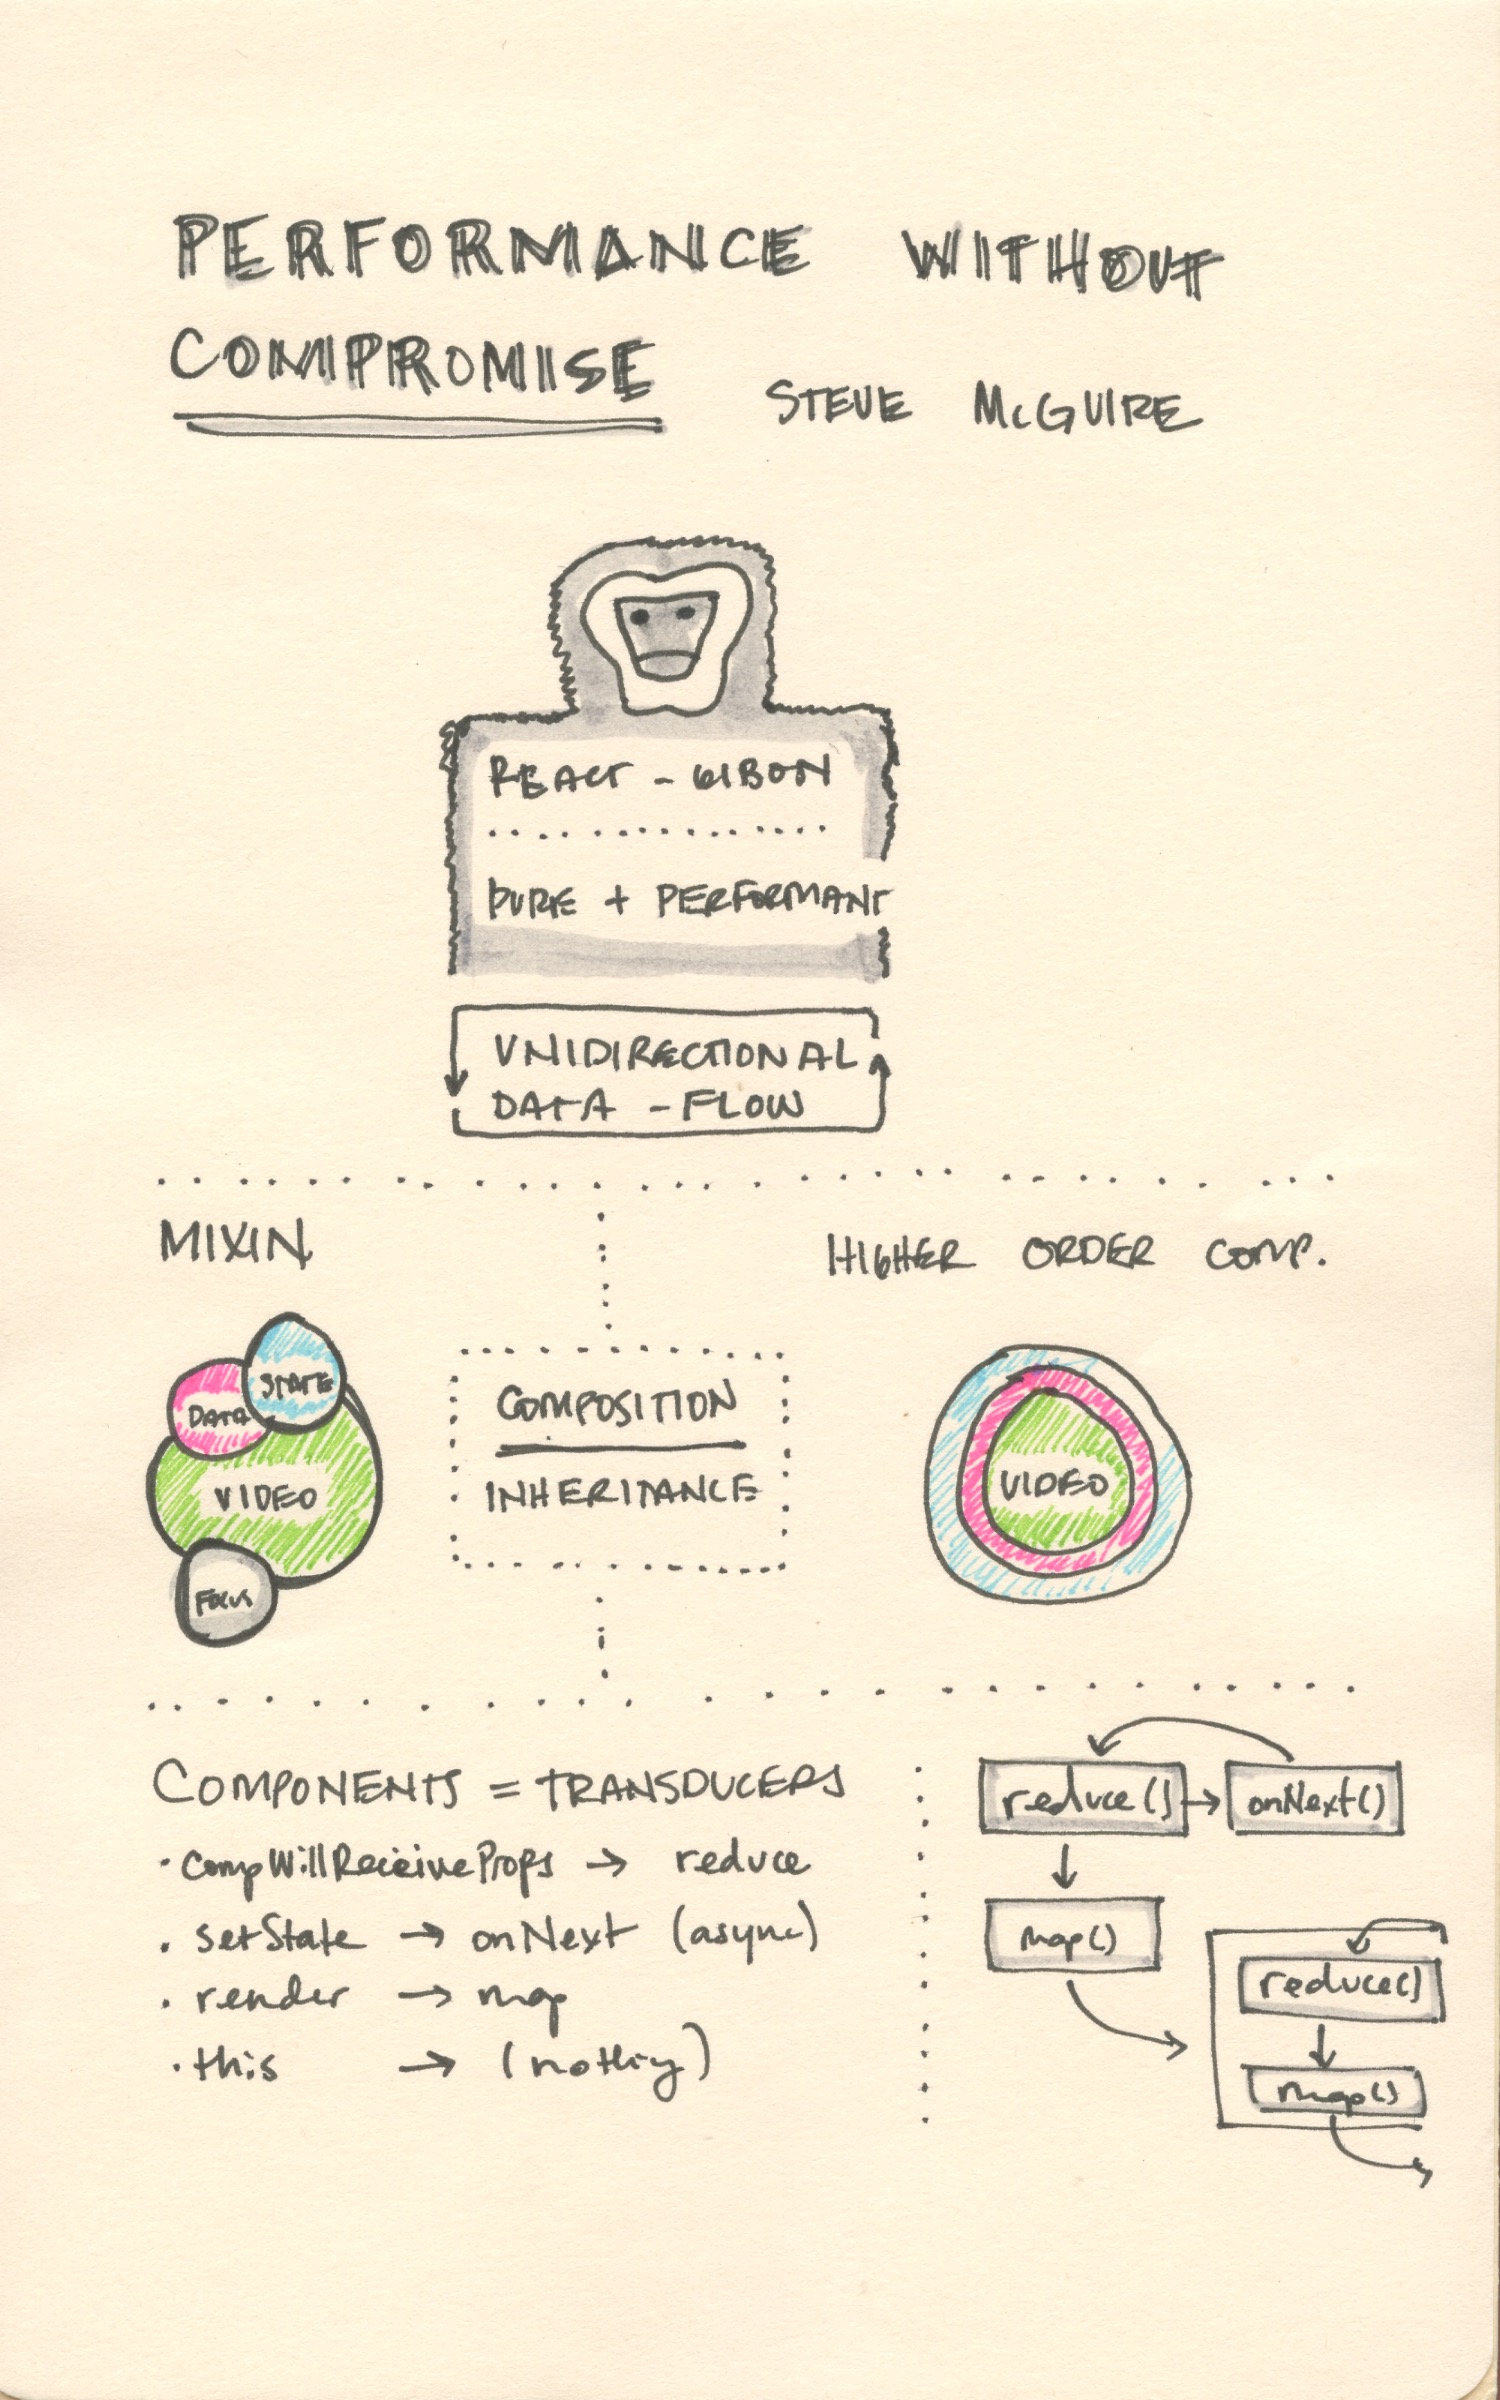 PERFORMANCE WITHOUT
COMPROMISE
STEVE McGUIRE
REACT - GIBON
PURE + PERFORMANT
UNIDIRECTIONAL
DATA - FLOW
MIXIN
HIGHER ORDER COMP.
STATE
DATA
VIDEO
FOCUS
COMPOSITION
INHERITANCE
VIDEO
COMPONENTS = TRANSDUCERS
· compWillReceiveProps → reduce
· setState → onNext (async)
· render → map
· this → (nothing)
reduce() → onNext()
map()
reduce()
map()